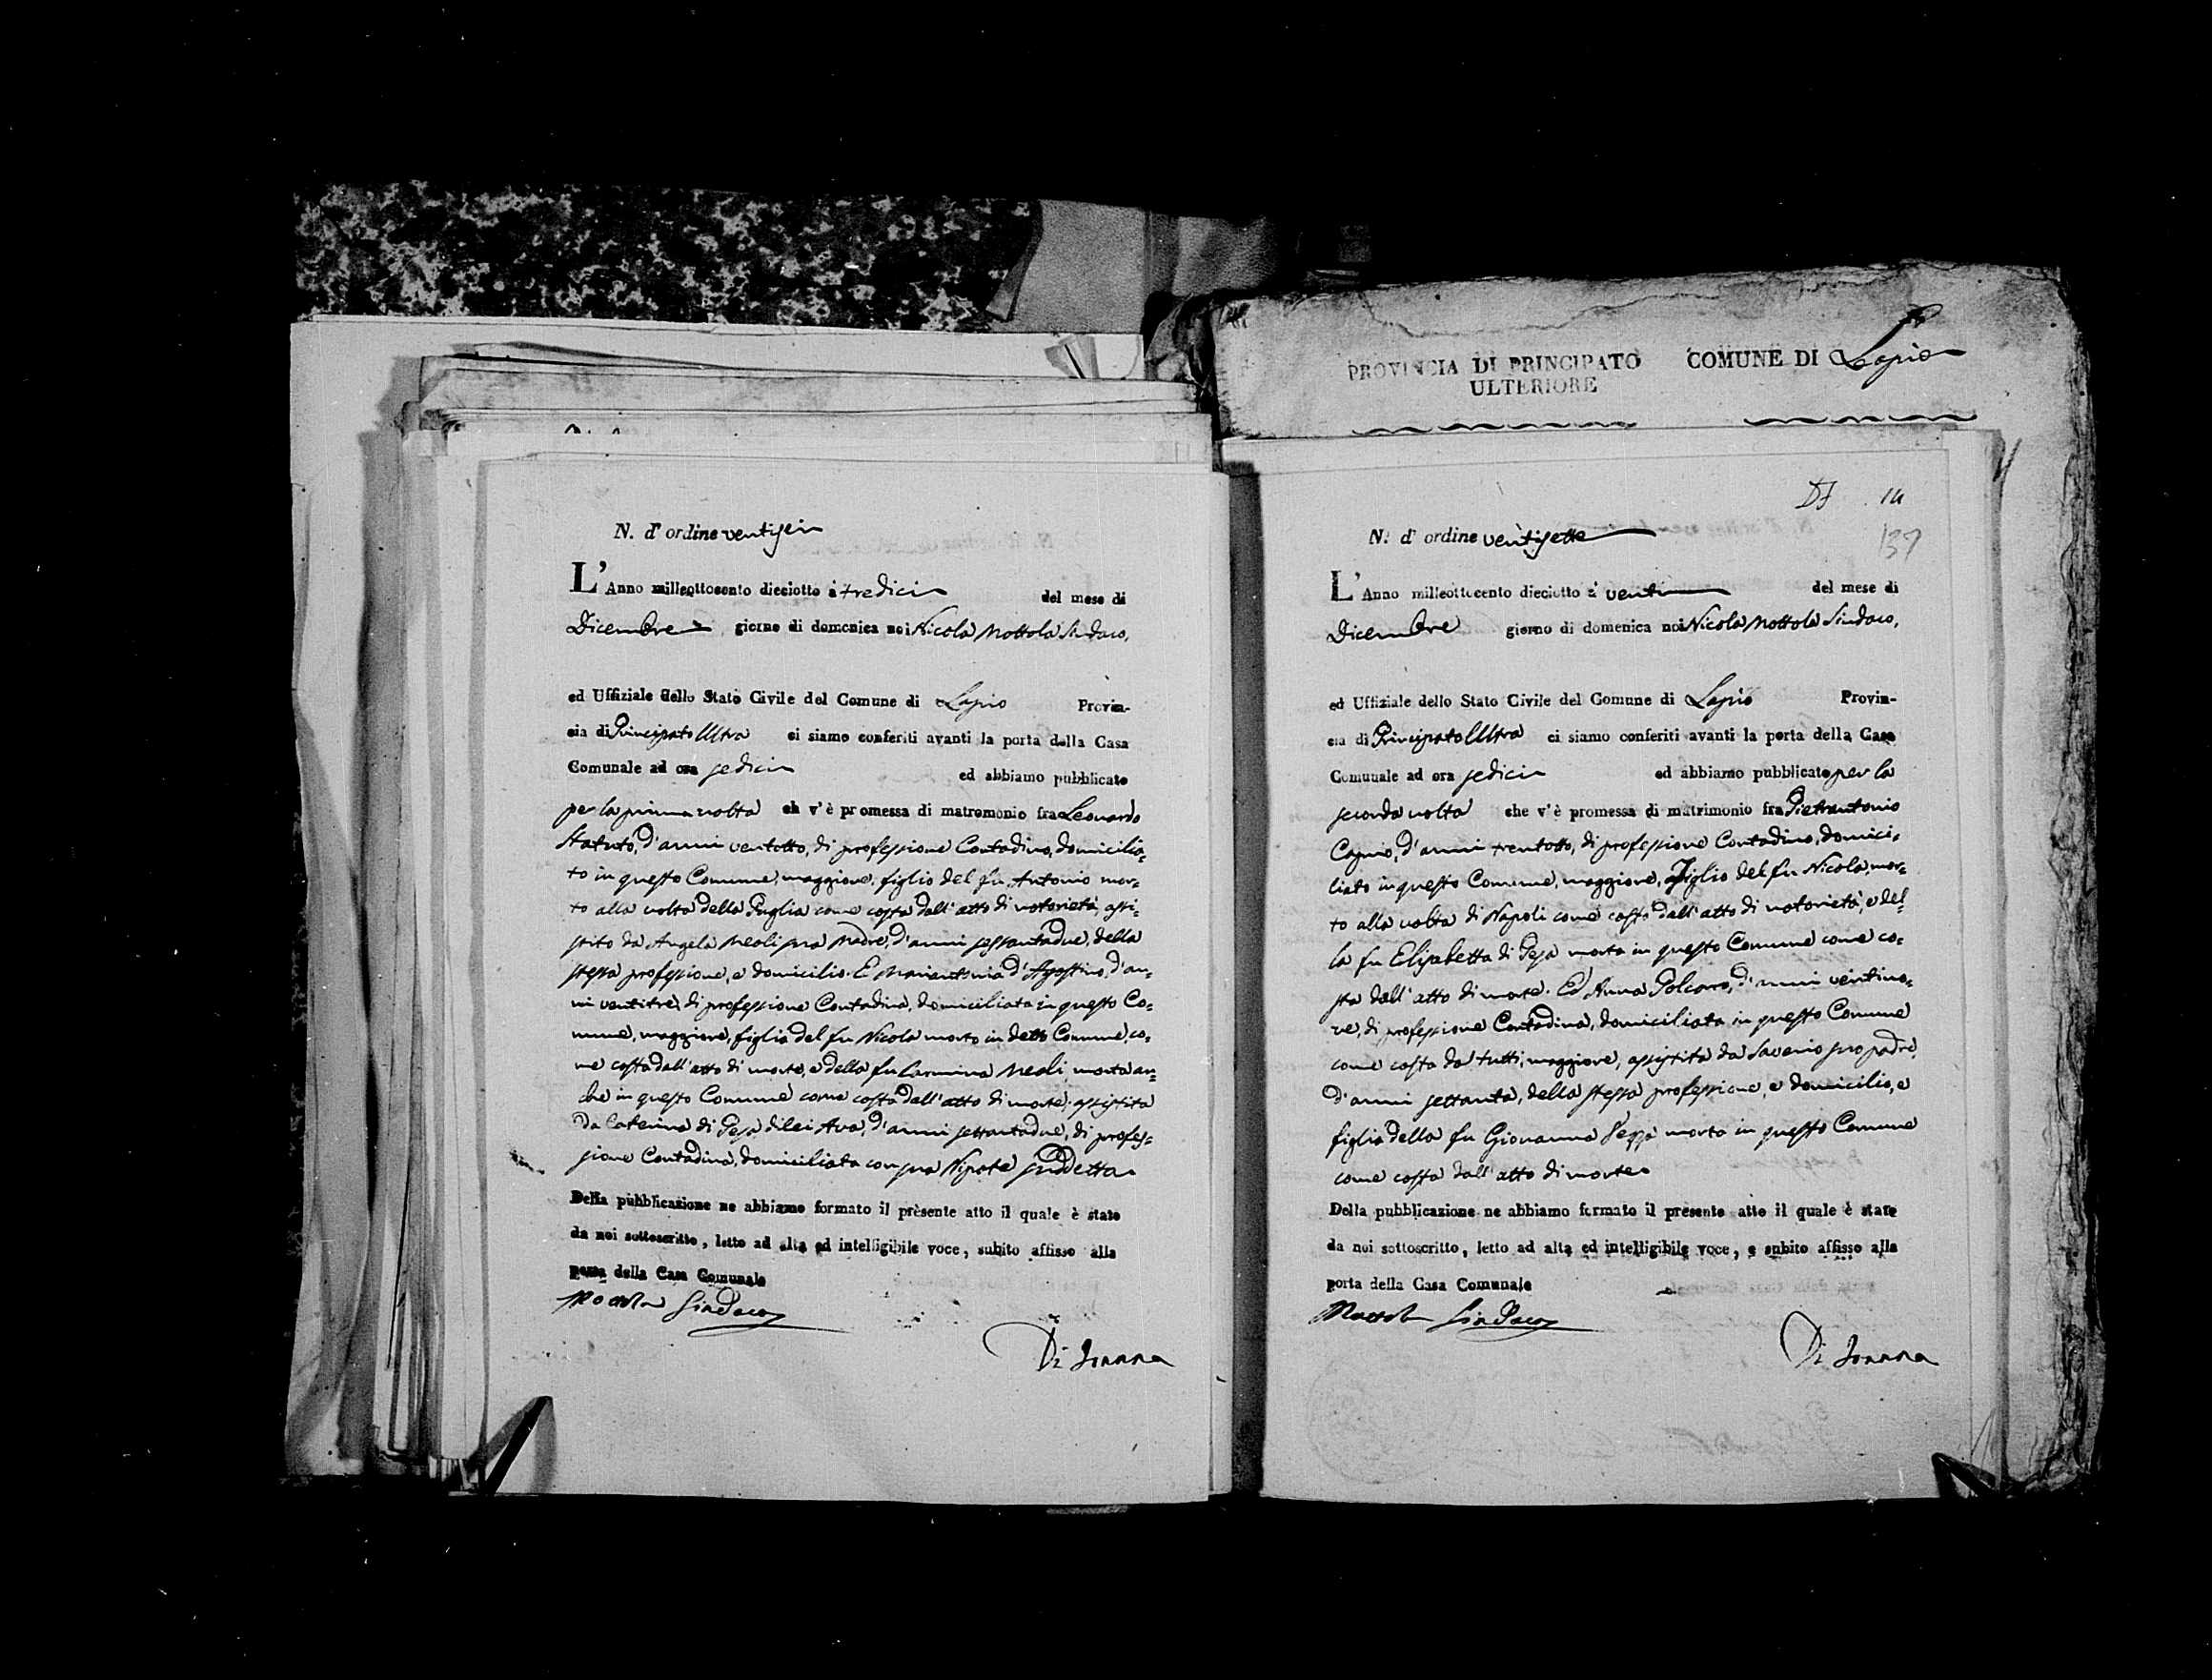 PROVINCIA DI PRINCIPATO ULTERIORE
COMUNE DI Lapio
N. d' ordine ventisei
L'Anno milleottocento dieciotto à tredici del mese di
Dicembre giorno di domenica noi Nicola Mottola Sindaco,
ed Uffiziale dello Stato Civile del Comune di Lapio Provin-
cia di Principato Ultra ci siamo conferiti avanti la porta della Casa
Comunale ad ora sedici ed abbiamo pubblicato
per la prima volta ch v'è promessa di matromonio fra Leonardo
Statuto, d'anni ventotto, di professione Contadino, domicilia=
to in questo Comune, maggiore, figlio del fu Antonio mor=
to alla volta della Puglia come costa dall'atto di notorietà, assi=
stito da Angela Meoli sua Madre, d'anni sessantadue, della
stessa professione, e domicilio. E Mariantonia d'Agostino, d'an=
ni ventitre, di professione Contadina, domiciliata in questo Co=
mune, maggiore, figlia del fu Nicola morto in detto Comune, co=
me costa dall'atto di morte, e della fu Carmina Meoli morta an=
che in questo Comune come costa dall'atto di morte; assistita
da Caterina di Peja di lei Ava, d'anni settantadue, di profes=
sione Contadina, domiciliata con sua Nipote suddetta.
Della pubblicazione ne abbiamo formato il prèsente atto il quale è stato
da noi sottoscritto, letto ad alta ed intelligibile voce, subito affisso alla
porta della Casa Comunale
Mottola Sindaco
Di Ioanna
14
137
N. d' ordine ventisette
L'Anno milleottocento dieciotto à venti del mese di
Dicembre giorno di domenica noi Nicola Mottola Sindaco,
ed Uffiziale dello Stato Civile del Comune di Lapio Provin-
cia di Principato Ultra ci siamo conferiti avanti la porta della Casa
Comunale ad ora sedici ed abbiamo pubblicato per la
seconda volta che v'è promessa di matrimonio fra Pietrantonio
d'anni trentotto, di professione Contadino, domici=
liato in questo Comune, maggiore, figlio del fu Nicola, mor=
to alla volta di Napoli come costa dall'atto di notorietà, e del=
la fu Elisabetta di Peja morta in questo Comune come co=
sta dall'atto di morte. Ed Anna Polcaro, d'anni ventino=
ve, di professione Contadina, domiciliata in questo Comune
come costa da tutti, maggiore, assistita da Saverio suo padre
d'anni settanta, della stessa professione, e domicilio, e
figlia della fu Giovanna morta in questo Comune
come costa dall'atto di morte.
Della pubblicazione ne abbiamo formato il presente atto il quale è state
da noi sottoscritto, letto ad alta ed intelligibile voce, e subito affisso alla
porta della Casa Comunale
Mottola Sindaco
Di Ioanna